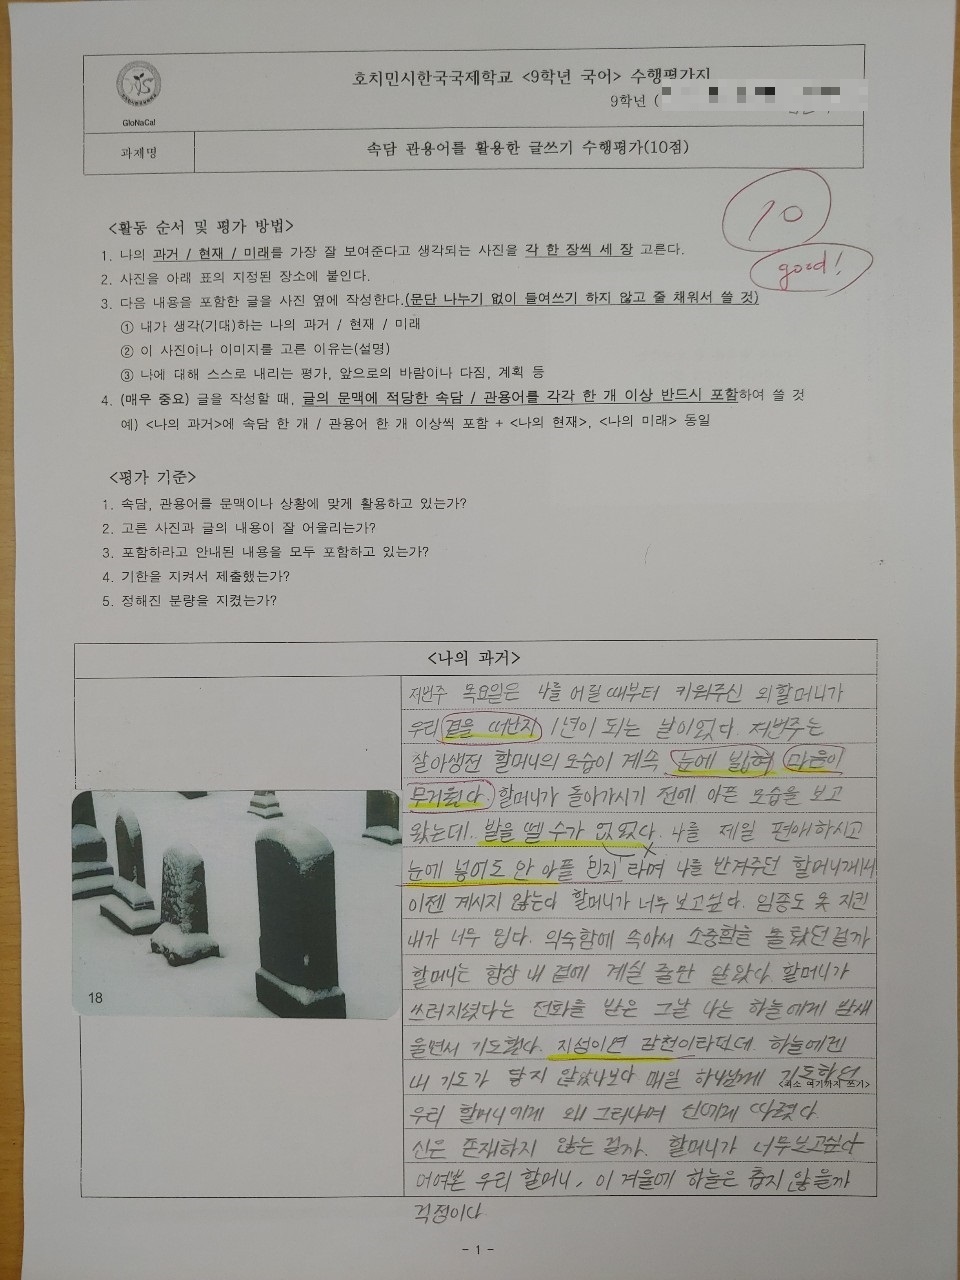 호치민시한국국제학교 <9학년 국어> 수행평가지
9학년 (
GloNaCal
과제명
속담 관용어를 활용한 글쓰기 수행평가(10점)
10
good!
<활동 순서 및 평가 방법>
1. 나의 과거 / 현재 / 미래를 가장 잘 보여준다고 생각되는 사진을 각 한 장씩 세 장 고른다.
2. 사진을 아래 표의 지정된 장소에 붙인다.
3. 다음 내용을 포함한 글을 사진 옆에 작성한다.(문단 나누기 없이 들여쓰기 하지 않고 줄 채워서 쓸 것)
① 내가 생각(기대)하는 나의 과거 / 현재 / 미래
② 이 사진이나 이미지를 고른 이유는(설명)
③ 나에 대해 스스로 내리는 평가, 앞으로의 바람이나 다짐, 계획 등
4. (매우 중요) 글을 작성할 때, 글의 문맥에 적당한 속담 / 관용어를 각각 한 개 이상 반드시 포함하여 쓸 것
예) <나의 과거>에 속담 한 개 / 관용어 한 개 이상씩 포함 + <나의 현재>, <나의 미래> 동일
<평가 기준>
1. 속담, 관용어를 문맥이나 상황에 맞게 활용하고 있는가?
2. 고른 사진과 글의 내용이 잘 어울리는가?
3. 포함하라고 안내된 내용을 모두 포함하고 있는가?
4. 기한을 지켜서 제출했는가?
5. 정해진 분량을 지켰는가?
<나의 과거>
저번주 목요일은 나를 어릴 때부터 키워주신 외할머니가
우리 곁을 떠난지 1년이 되는 날이었다. 저번주는
살아생전 할머니의 모습이 계속 눈에 밟혀 마음이
무거웠다. 할머니가 돌아가시기 전에 아픈 모습을 보고
왔는데. 발을 뗄 수가 없었다. 나를 제일 편애하시고
눈에 넣어도 안 아플 민지 라며 나를 반겨주던 할머니께서
이젠 계시지 않는다 할머니가 너무 보고싶다. 임종도 못 지킨
내가 너무 밉다. 익숙함에 속아서 소중함을 몰랐던 걸까
할머니는 항상 내 곁에 계실 줄만 알았다. 할머니가
쓰러지셨다는 전화를 받은 그날 나는 하늘에게 밤새
울면서 기도했다. 지성이면 감천이라던데. 하늘에겐
내 기도가 닿지 않았나보다 매일 하나님께 기도하던
<최소 여기까지 쓰기>
우리 할머니에게 왜 그러냐며 신에게 따졌다
신은 존재하지 않는 걸까. 할머니가 너무보고싶다
어여쁜 우리 할머니, 이 겨울에 하늘은 춥지 않을까
걱정이다
18
- 1 -